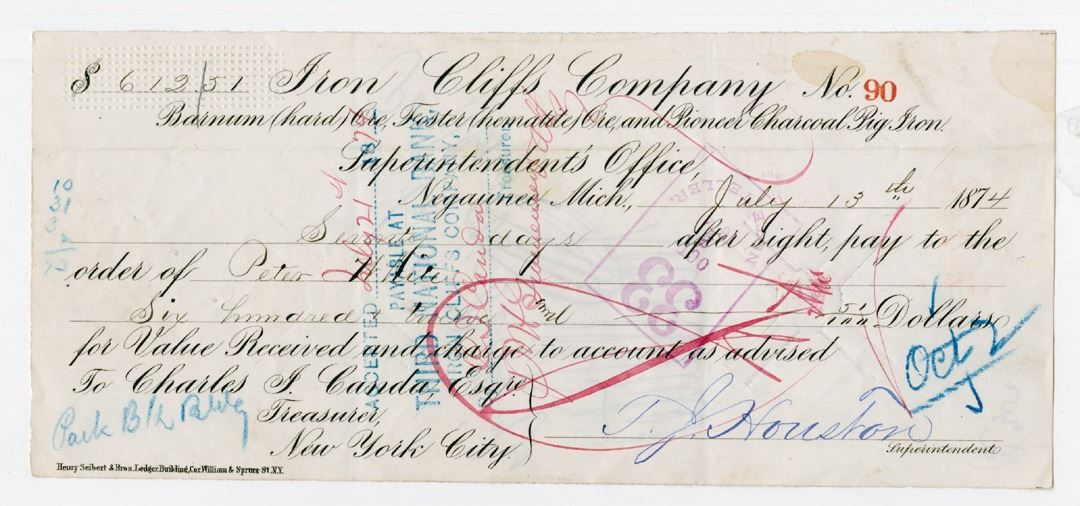 $ 612/51 Iron Cliffs Company No. 90
Barnum (hard) Ore, Foster (hematite) Ore, and Pioneer Charcoal Pig Iron.
Superintendent's Office,
Negaunee, Mich., July 13th 1874
days after sight, pay to the
order of Peter White
Six hundred & twelve and 51/100 Dollars
for Value Received and charge to account as advised
To Charles J. Canda, Esqre
Treasurer,
New York City.
T. J. Houston
Superintendent.
Henry Seibert & Bros. Ledger Building, Cor. William & Spruce St. N.Y.
Park Bk Bldg
Oct 2
10
31
ACCEPTED July 21st 187
PAYABLE AT
THIRD NATIONAL BANK
IRON CLIFFS COMPANY,
Treasurer
TELLER.
OCT